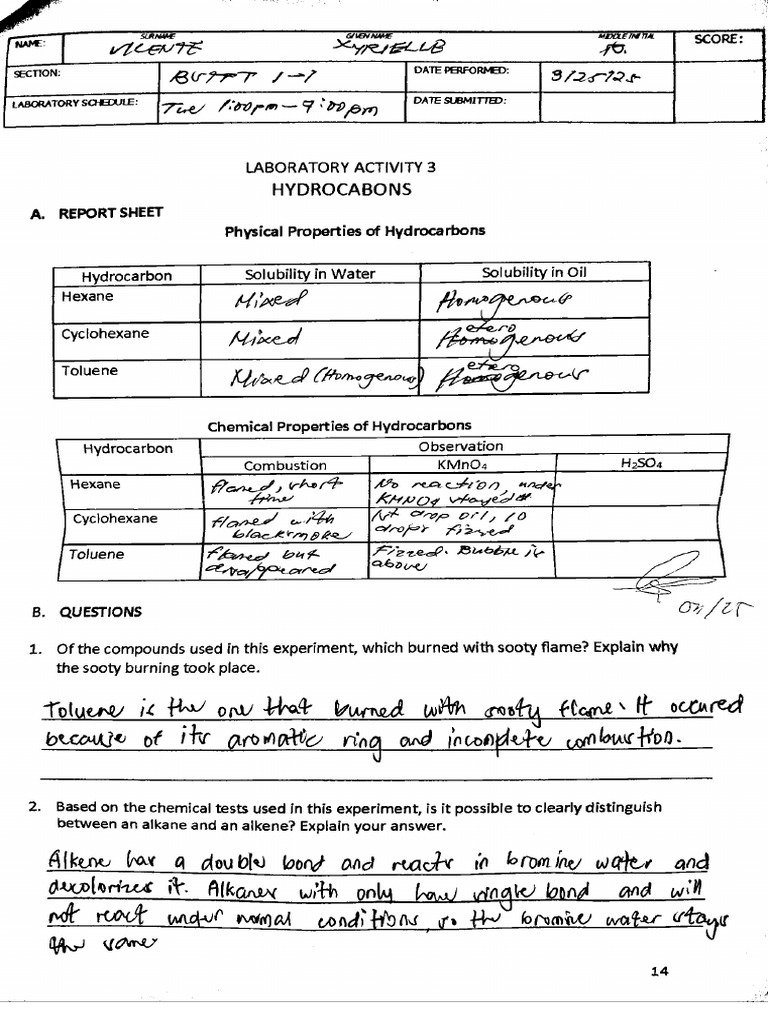 SURNAME GIVEN NAME MIDDLE INITIAL
NAME: VICENTE XYRIELLE SCORE:
SECTION: 1-1 DATE PERFORMED: 3/25/25
LABORATORY SCHEDULE: Tue 1:00pm - 9:00pm DATE SUBMITTED:
LABORATORY ACTIVITY 3
HYDROCABONS
A. REPORT SHEET
Physical Properties of Hydrocarbons
Hydrocarbon Solubility in Water Solubility in Oil
Hexane Mixed Homogenous
Cyclohexane Mixed Homogenous etero
Toluene Mixed (Homogenous) Homogenous etero
Chemical Properties of Hydrocarbons
Hydrocarbon Observation
Combustion KMnO4 H2SO4
Hexane flared, short time No reaction, under KMNO4 stayed
Cyclohexane flared with black smoke drop oil, 10 drops fizzed
Toluene flared but disappeared Fizzed. Bubble is above
B. QUESTIONS
1. Of the compounds used in this experiment, which burned with sooty flame? Explain why
the sooty burning took place.
Toluene is the one that burned with sooty flame. It occured
because of its aromatic ring and incomplete combustion.
2. Based on the chemical tests used in this experiment, is it possible to clearly distinguish
between an alkane and an alkene? Explain your answer.
Alkene has a double bond and reacts in bromine water and
decolorizes it. Alkanes with only have single bond and will
not react under normal conditions, so the bromine water stays
the same
14